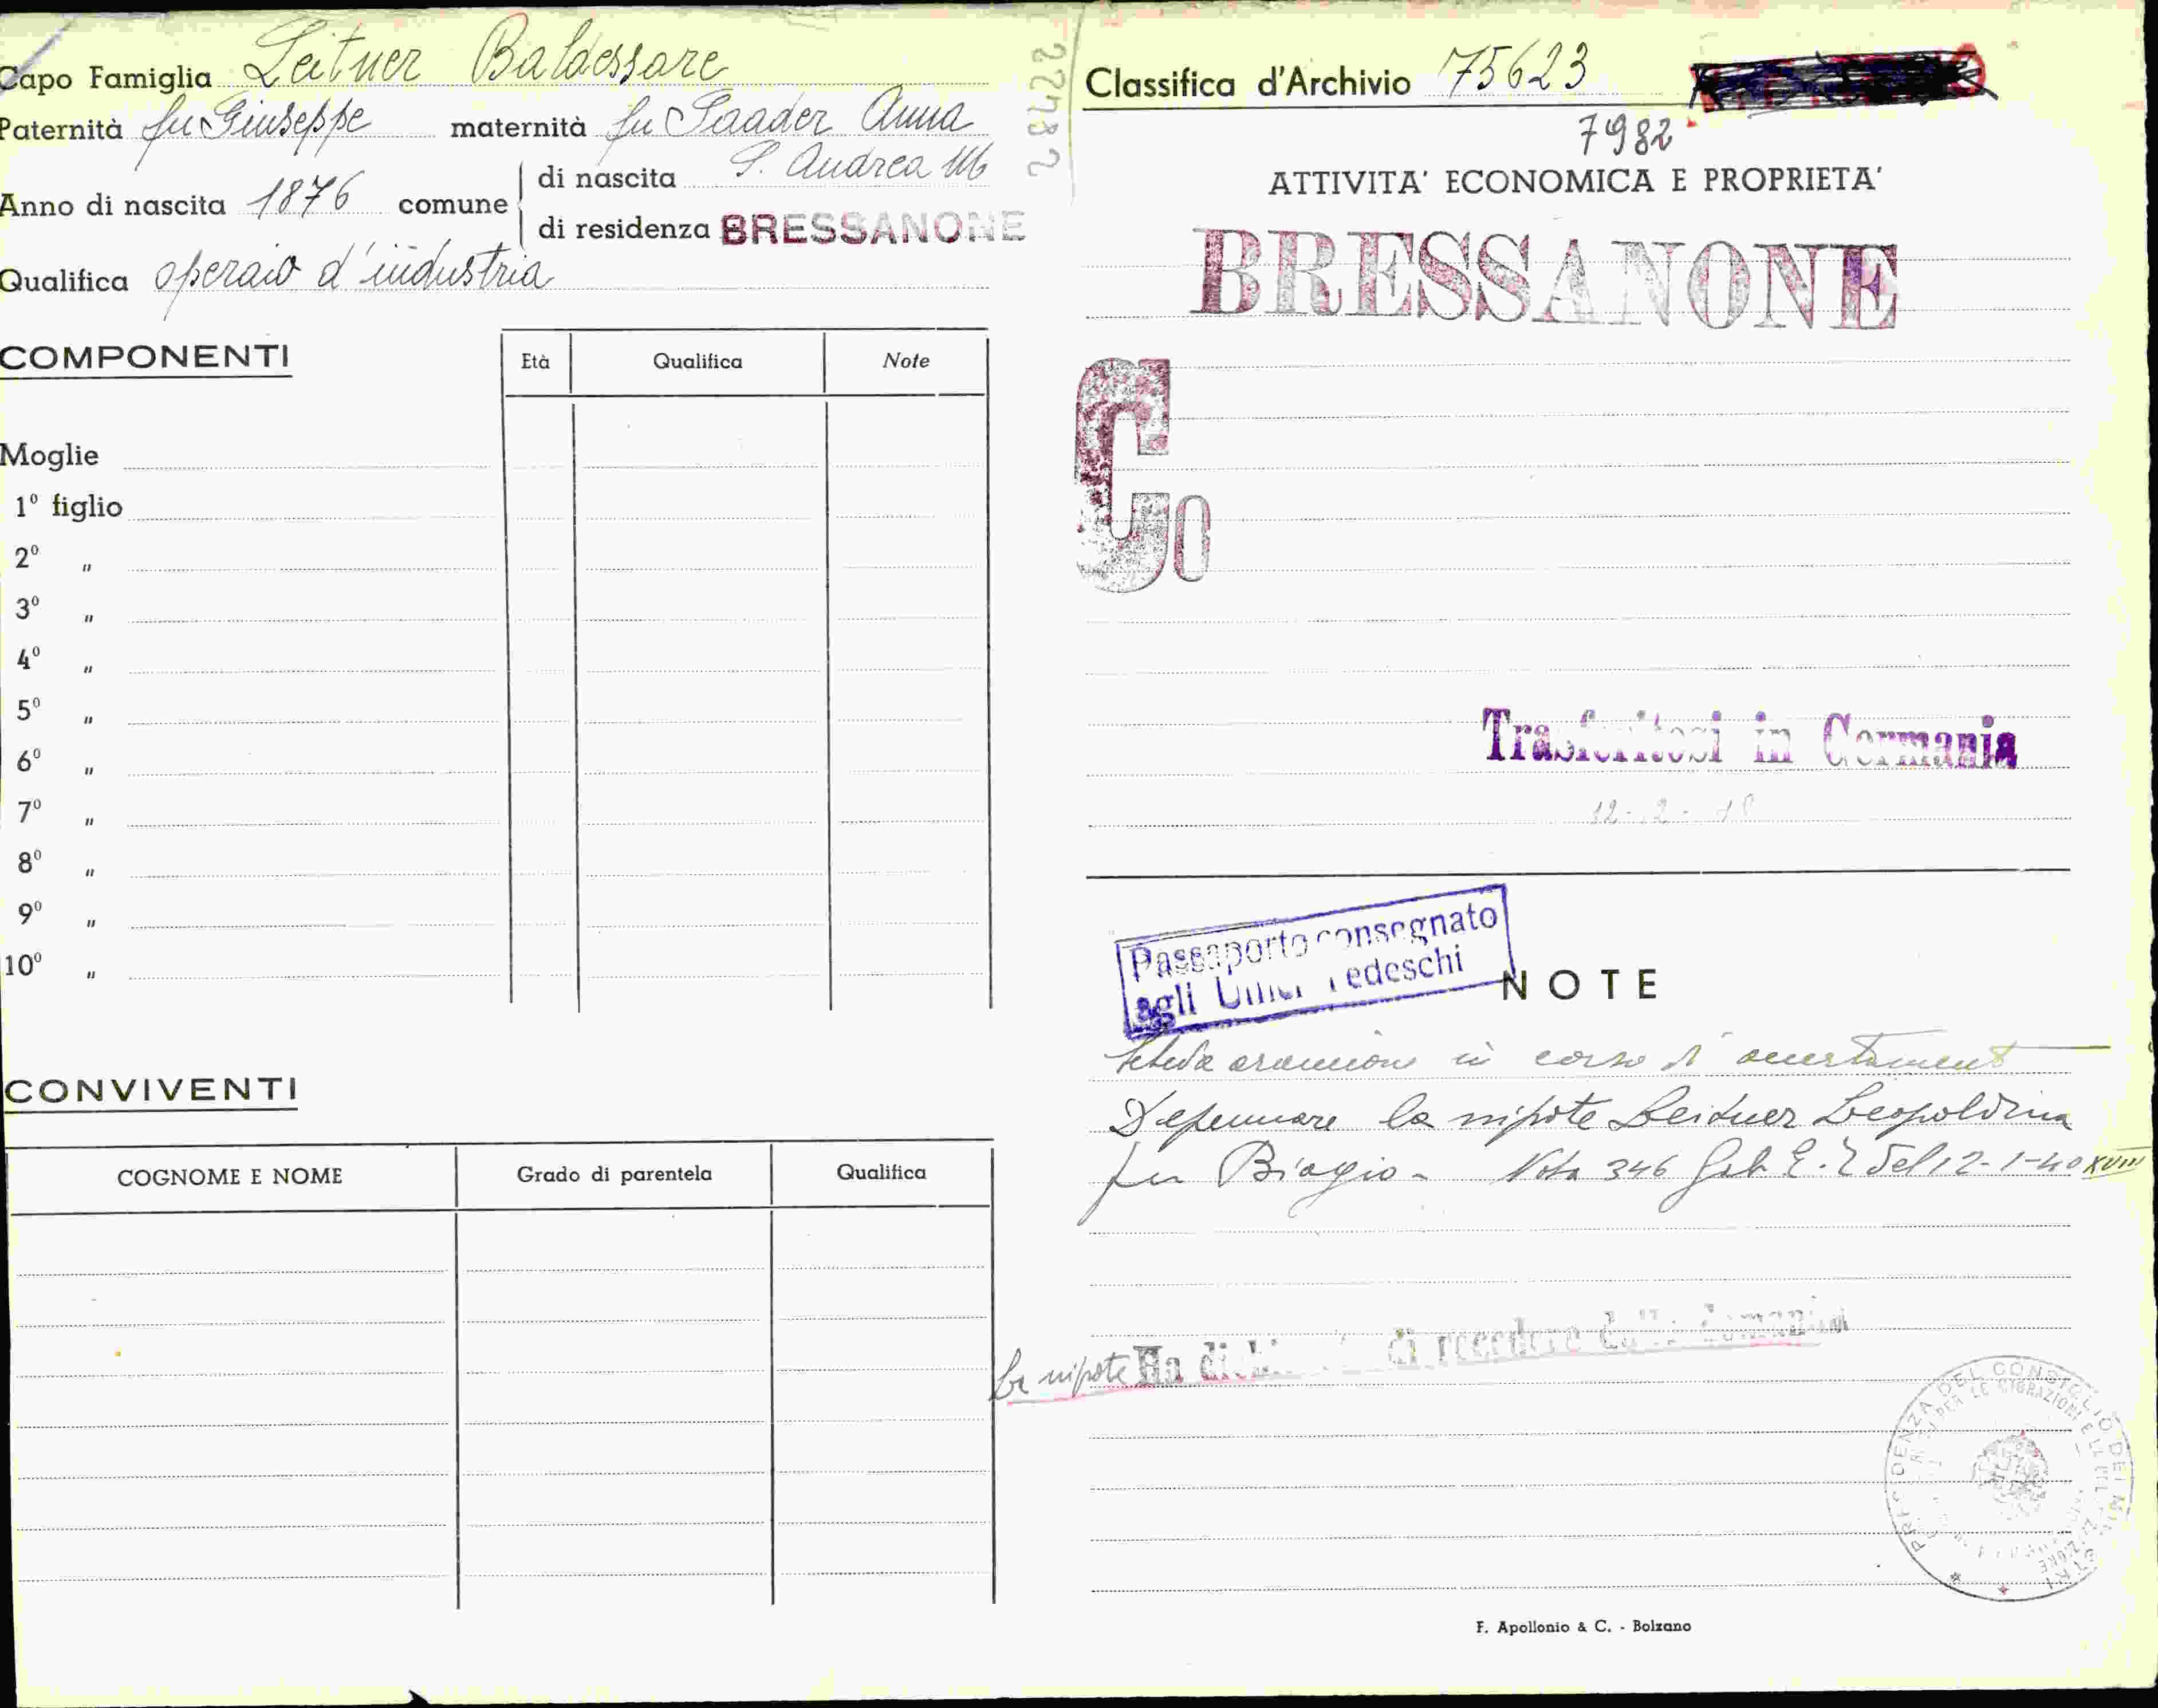 Capo Famiglia Leitner Baldessare
Paternità fu Giuseppe maternità fu Saader Anna
Anno di nascita 1876 comune
di nascita S. Andrea M
di residenza BRESSANONE
Qualifica operaio d'industria
COMPONENTI
Età Qualifica Note
Moglie
1º figlio
2º "
3º "
4º "
5º "
6º "
7º "
8º "
9º "
10º "
CONVIVENTI
COGNOME E NOME Grado di parentela Qualifica
22482
Classifica d'Archivio 75623
7982
ATTIVITA' ECONOMICA E PROPRIETA'
BRESSANONE
Co
Trasferitosi in Germania
12-2-18
Passaporto consegnato
agli Uffici Tedeschi
NOTE
Scheda in corso di
Depennare la nipote Leitner Leopoldina
fu Biagio - Nota 346 Gab. del 12-1-40 XVIII
la nipote Ha di recedere dalla domanda
PRESIDENZA DEL CONSIGLIO DEI MINISTRI
F. Apollonio & C. - Bolzano